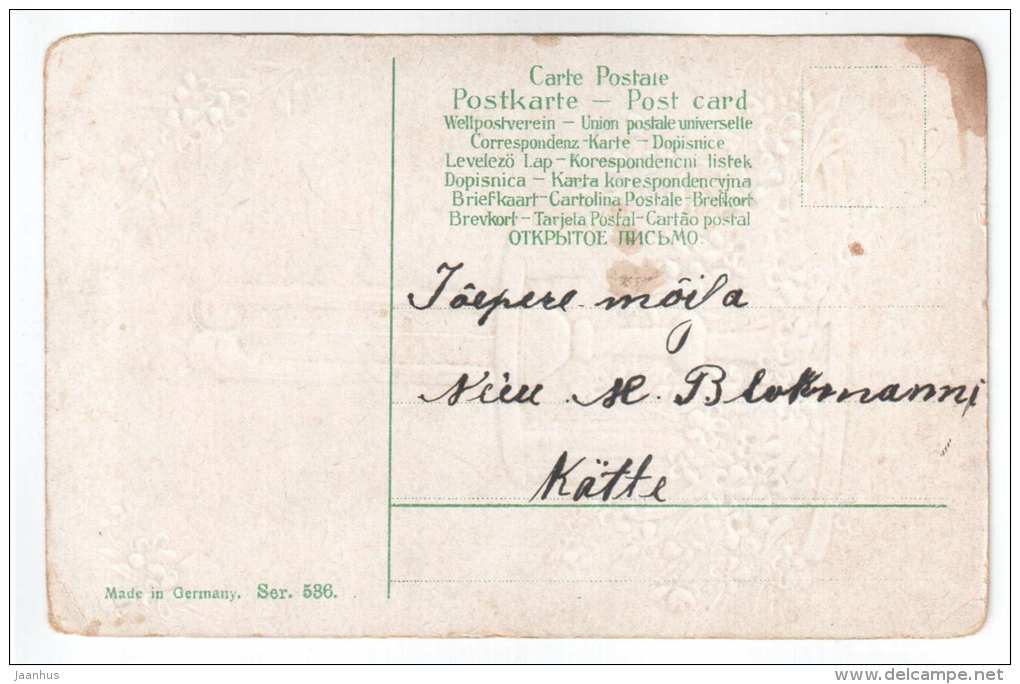 Carte Postale
Postkarte – Post card
Weltpostverein – Union postale universelle
Correspondenz-Karte – Dopisnice
Levelező Lap – Korespondencni listek
Dopisnica – Karta korespondencyjna
Briefkaart – Cartolina Postale – Brefkort
Brevkort – Tarjeta Postal – Cartão postal
ОТКРЫТОЕ ПИСЬМО.
Jõepere mõisa
M. Blokmanni
Kätte
Made in Germany. Ser. 536.
Jaanhus
www.delcampe.net